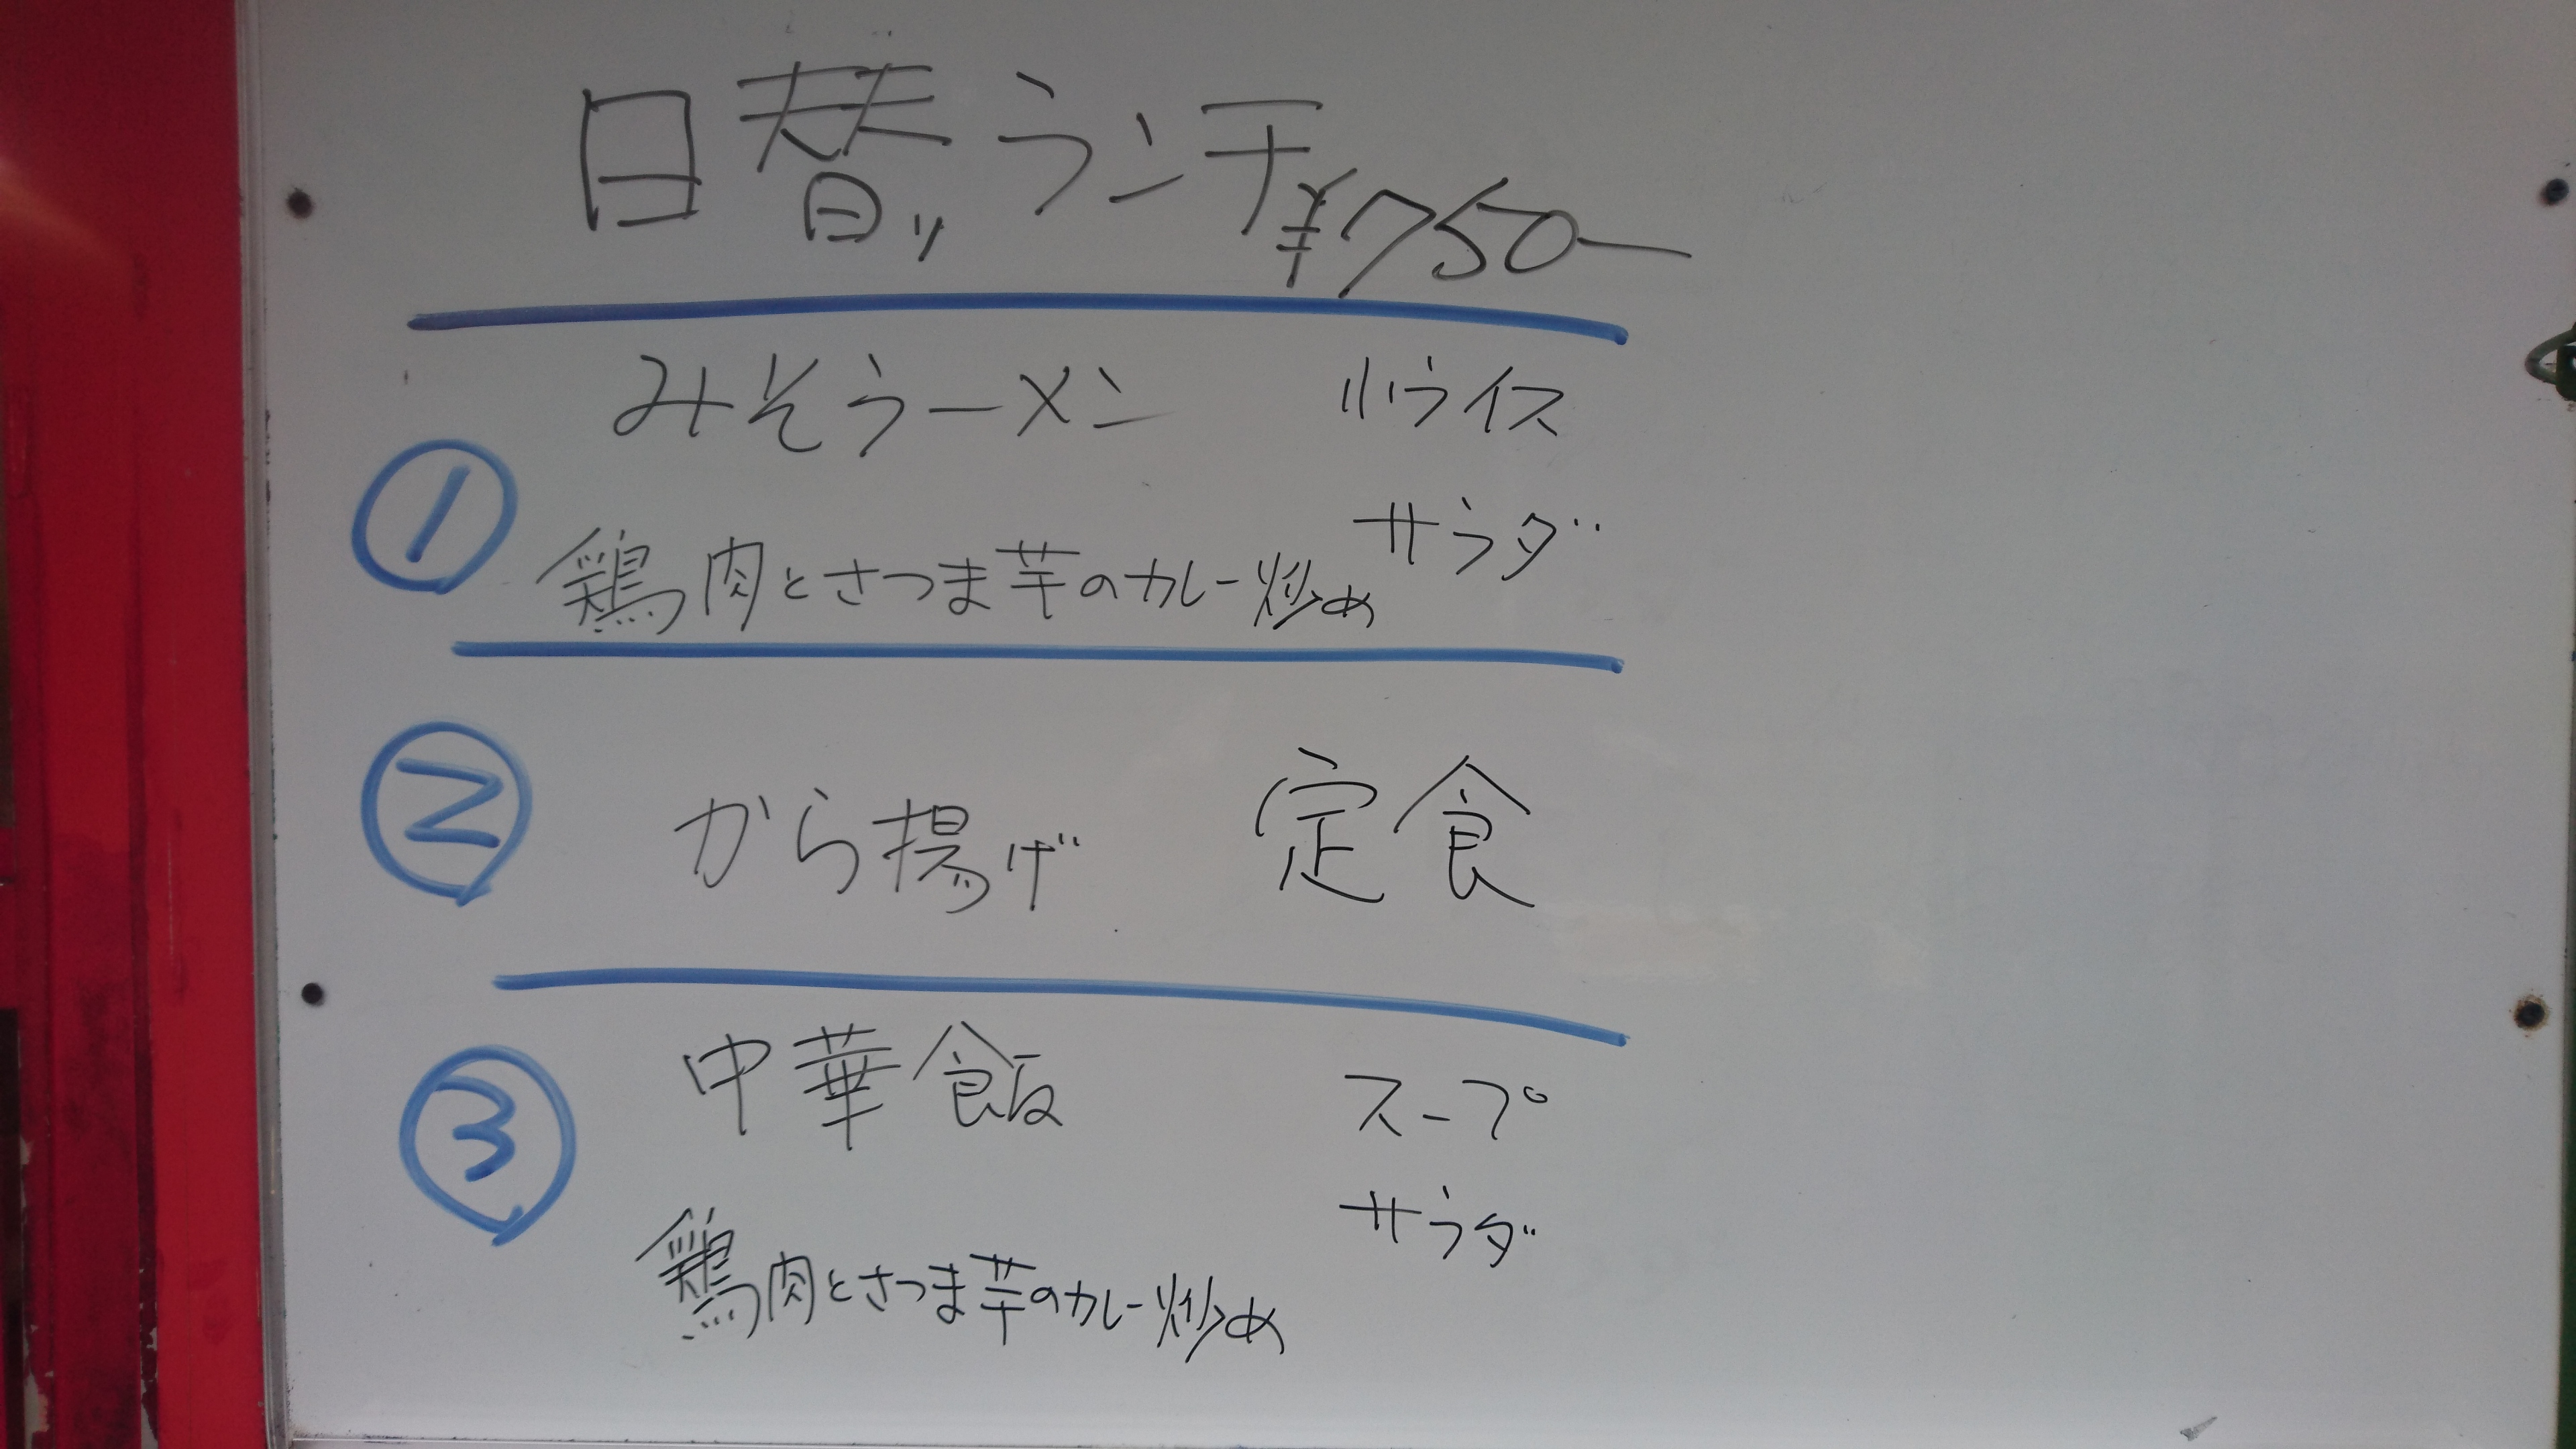 日替りランチ ¥750ー
みそラーメン 小ライス
① サラダ
鶏肉とさつま芋のカレー炒め
② から揚げ 定食
中華飯 スープ
③ サラダ
鶏肉とさつま芋のカレー炒め